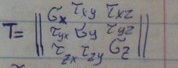 σx τxy τxz
T= || τyx σy τyz ||
τzx τzy σz